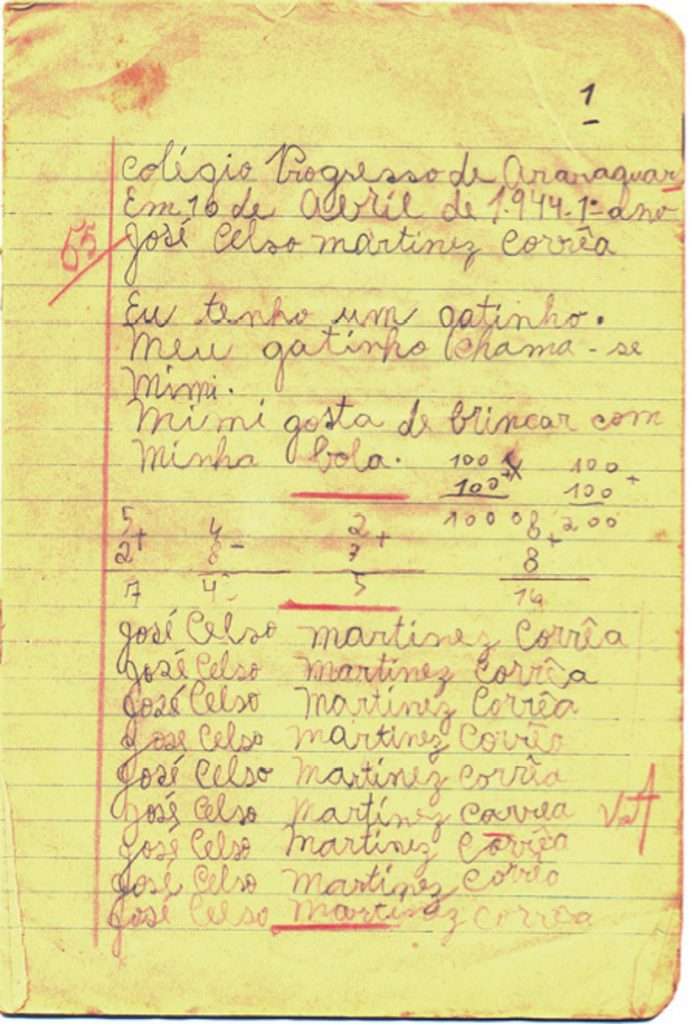 1
Colégio Progresso de Araraquar
Em 10 de Abril de 1.944. 1º ano
55
José Celso Martinez Corrêa
Eu tenho um gatinho.
Meu gatinho chama-se
Mimi.
Mimi gosta de brincar com
Minha bola.
100 x 100
100 100 +
10000 200
5 4 2 8
2 + 8 - 7 + 8 +
7 4 5 16
José Celso Martinez Corrêa
José Celso Martinez Corrêa
José Celso Martinez Corrêa
José Celso Martinez Corrêa
José Celso Martinez Corrêa
José Celso Martinez Correa
José Celso Martinez Corrêa
José Celso Martinez Corrêa
José Celso Martinez Corrêa